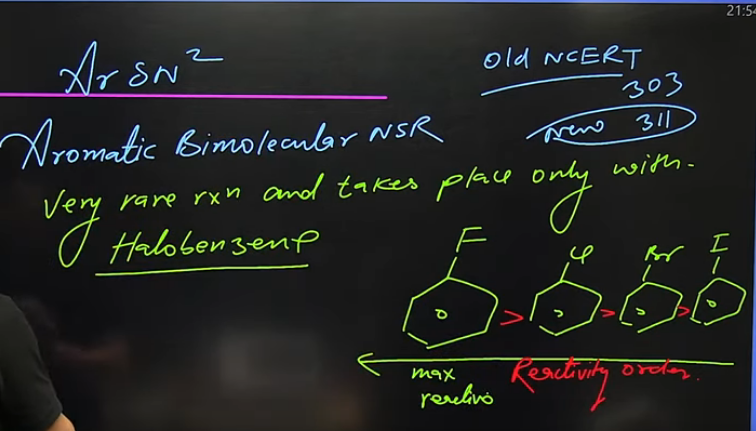 21:54
ArSN²
Old NCERT
303
New 311
Aromatic Bimolecular NSR
Very rare rxn and takes place only with-
Halobenzene
F
Cl
Br
I
> > >
max
Reactivity order.
reactivo